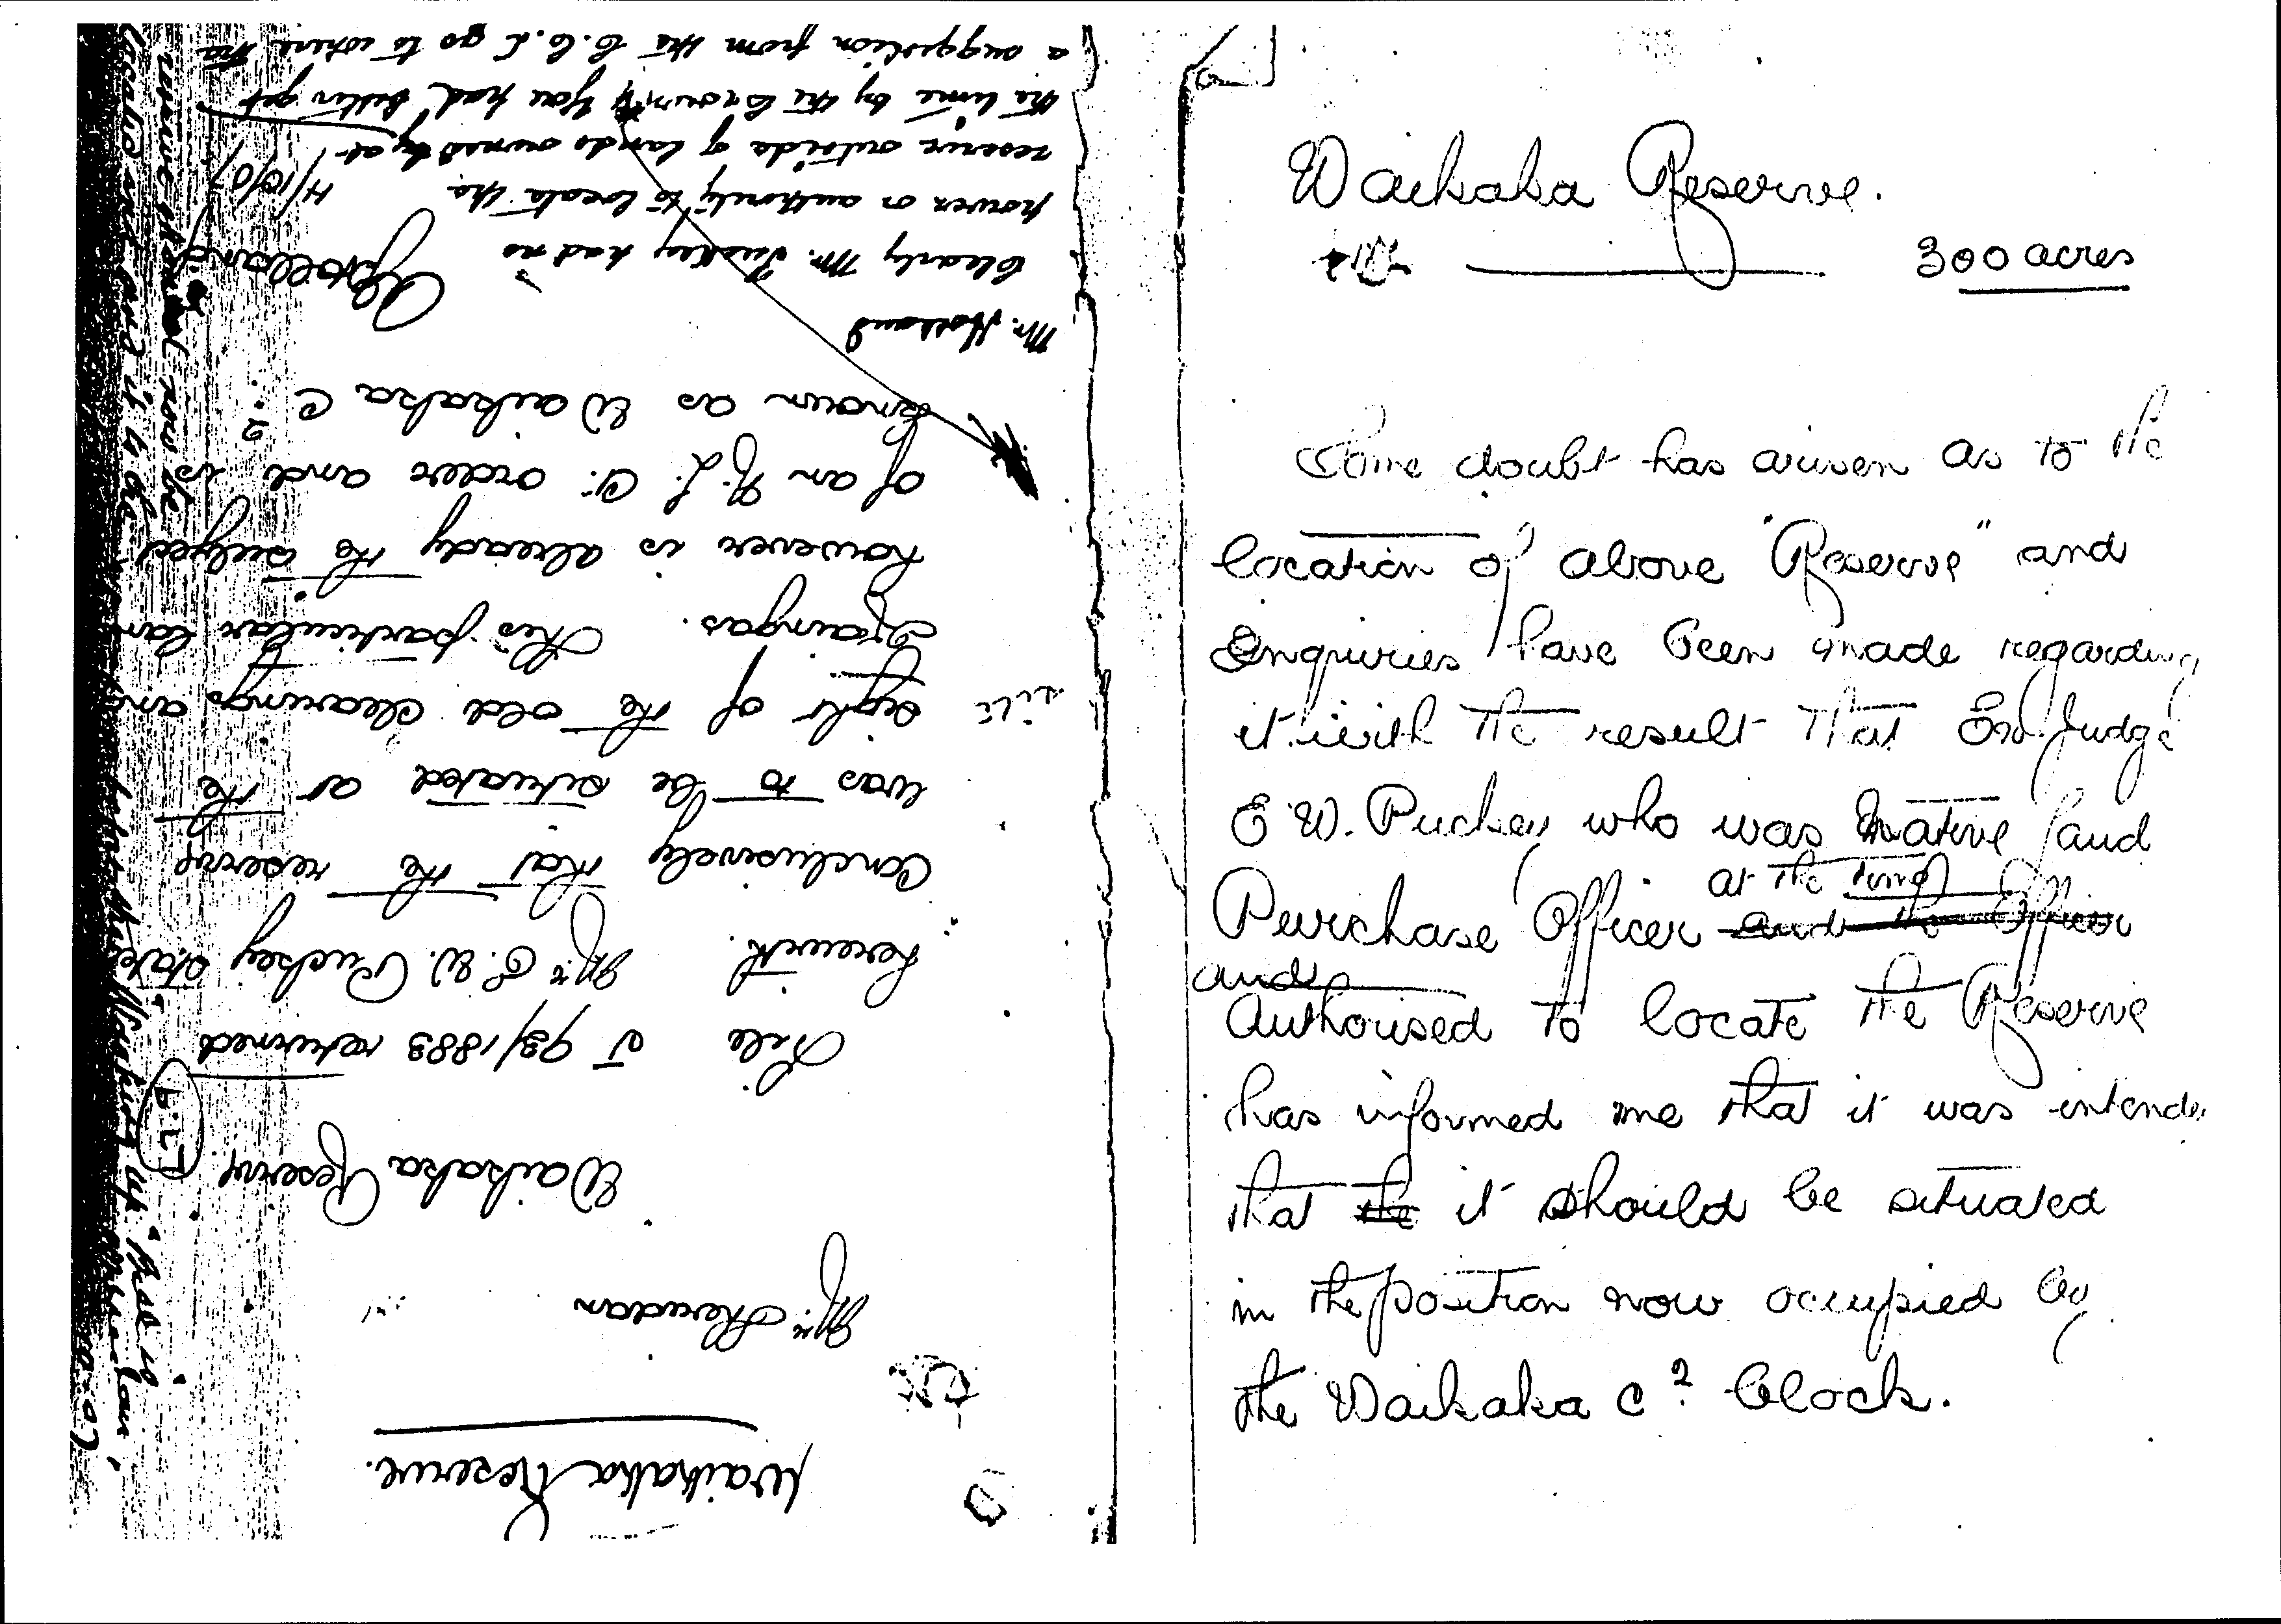 Waikaka Reserve.
300 acres
Some doubt has arisen as to the
location of above "Reserve" and
Enquiries have been made regarding
it with the result that Ex Judge
E W. Puckey who was Native Land
at the time
Purchase Officer and the Officer
and
Authorised to locate the Reserve
has informed me that it was intended
that the it should be situated
in the position now occupied by
the Waikaka C 2 Block.
Waikaka Reserve.
Mr. Sheridan
Waikaka Reserve
File J 93/1883 returned
herewith. Mr. E. W. Puckey states
Conclusively that the reserve
was to be situated at the
site
sight of the old clearings and
Kaingas. This particular land
however is already the subject
of an N. L. Ct. order and is
known as Waikaka C 2.
Mr. Holland
Clearly Mr. Puckey had no
power or authority to locate the
reserve outside of lands owned by at
the time by the Crown. You had better get
a suggestion from the C. C. L go to where the
4/10/07